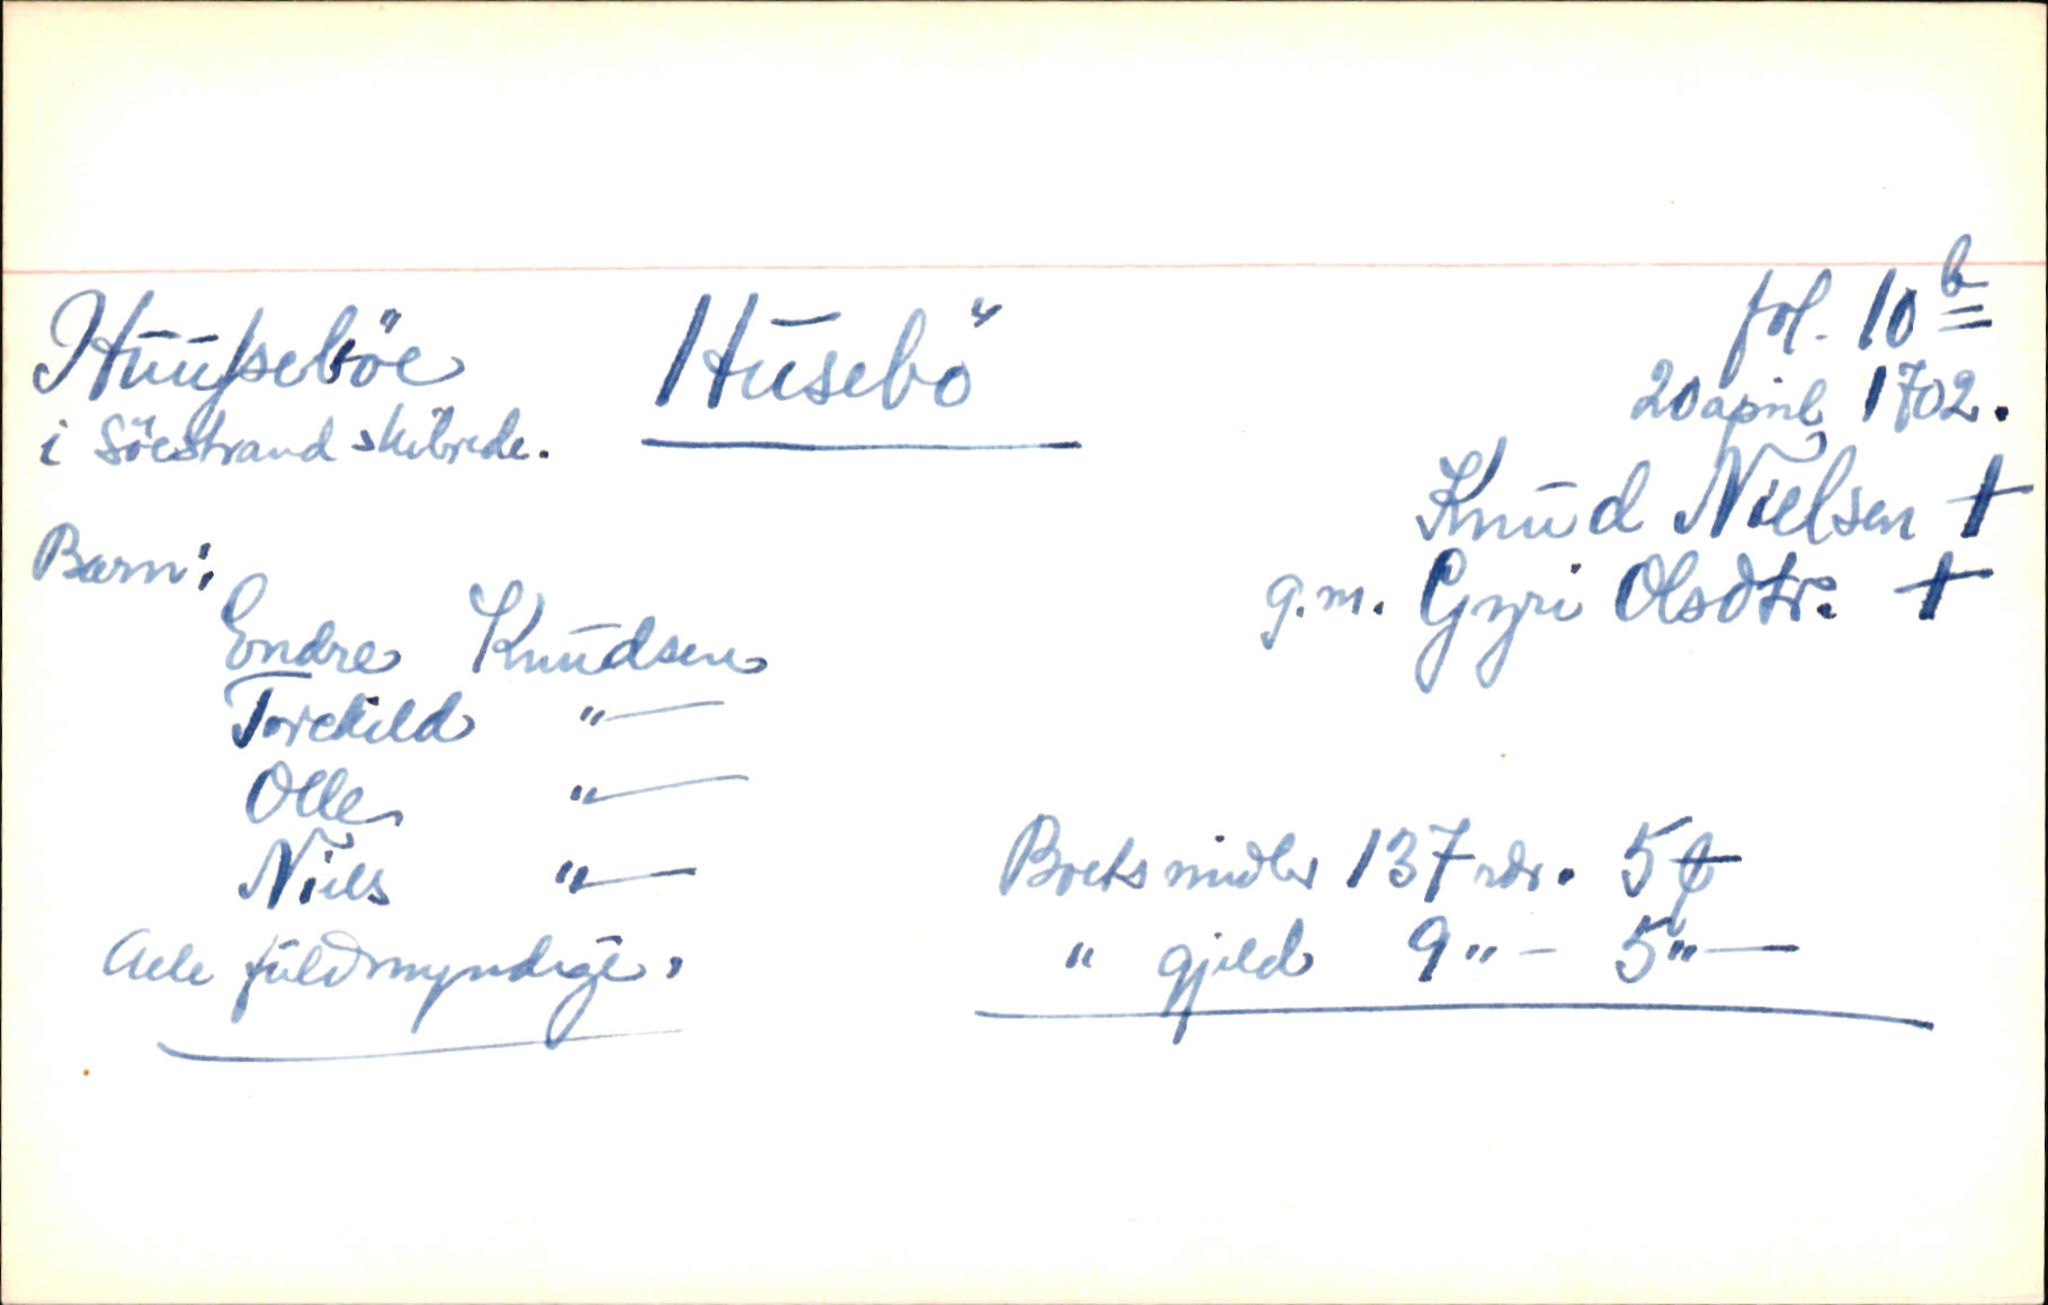 fol. 10 b
Huusseböe Husebö
20 april 1702.
i Söestrand skibrede.
Knud Nielsen †
g.m. Gyri Olsdtr. †
Barn:
Endre Knudsen
Torckild "—
Olle "—
Niels "—
Alle fuldmyndige.
Boets midler 137 rdr. 5 ₰
" gjeld 9 " – 5 " —